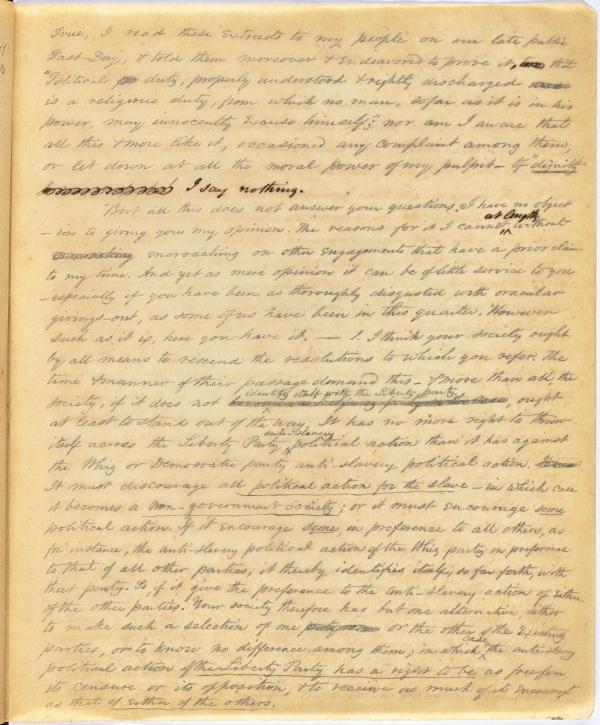 True, I read these Extracts to my people on our late public
Fast-Day, & told them moreover & Endeavored to prove it, that
"Political duty, properly understood & rightly discharged
is a religious duty, from which no man, so far as it is in his
power, may innocently Excuse himself;" nor am I aware that
all this & more like it, occasioned any complaint among them,
or let down at all the moral power of my pulpit - Of "dignity"
I say nothing.
But all this does not answer your questions. I have no object
-ion to giving you my opinion. The reasons for it I cannot at length, without
encroaching on other Engagements that have a prior claim
to my time. And yet as mere opinion it can be of little service to you
- especially if you have been as thoroughly disgusted with oracular
givings-out, as some of us have been in this quarter. However
such as it is, here you have it. — 1. I think your society ought
by all means to rescind the resolutions to which you refer. The
time & manner of their passage demand this - & more than all, the
society, if it does not identify itself with the Liberty party, ought
at least to stand out of the way. It has no more right to throw
itself across the Liberty Party anti-slavery political action than it has against
the Whig or Democratic party anti-slavery political action.
It must discourage all political action for the slave - in which case
it becomes a non-government society; or it must encourage some
political action. If it Encourage some in preference to all others, as
for instance, the anti-slavery political action of the Whig party in preference
to that of all other parties, it thereby identifies itself, so far forth, with
that party. So, if it give the preference to the anti-slavery action of Either
of the other parties. Your society therefore has but one alternative, either
to make such a selection of one or the other of the Existing
parties, or to know no difference among them; in which case the anti-slavery
political action of the Liberty Party has a right to be as free from
its censure or its opposition, & to receive as much of its Encourag't
as that of Either of the others.